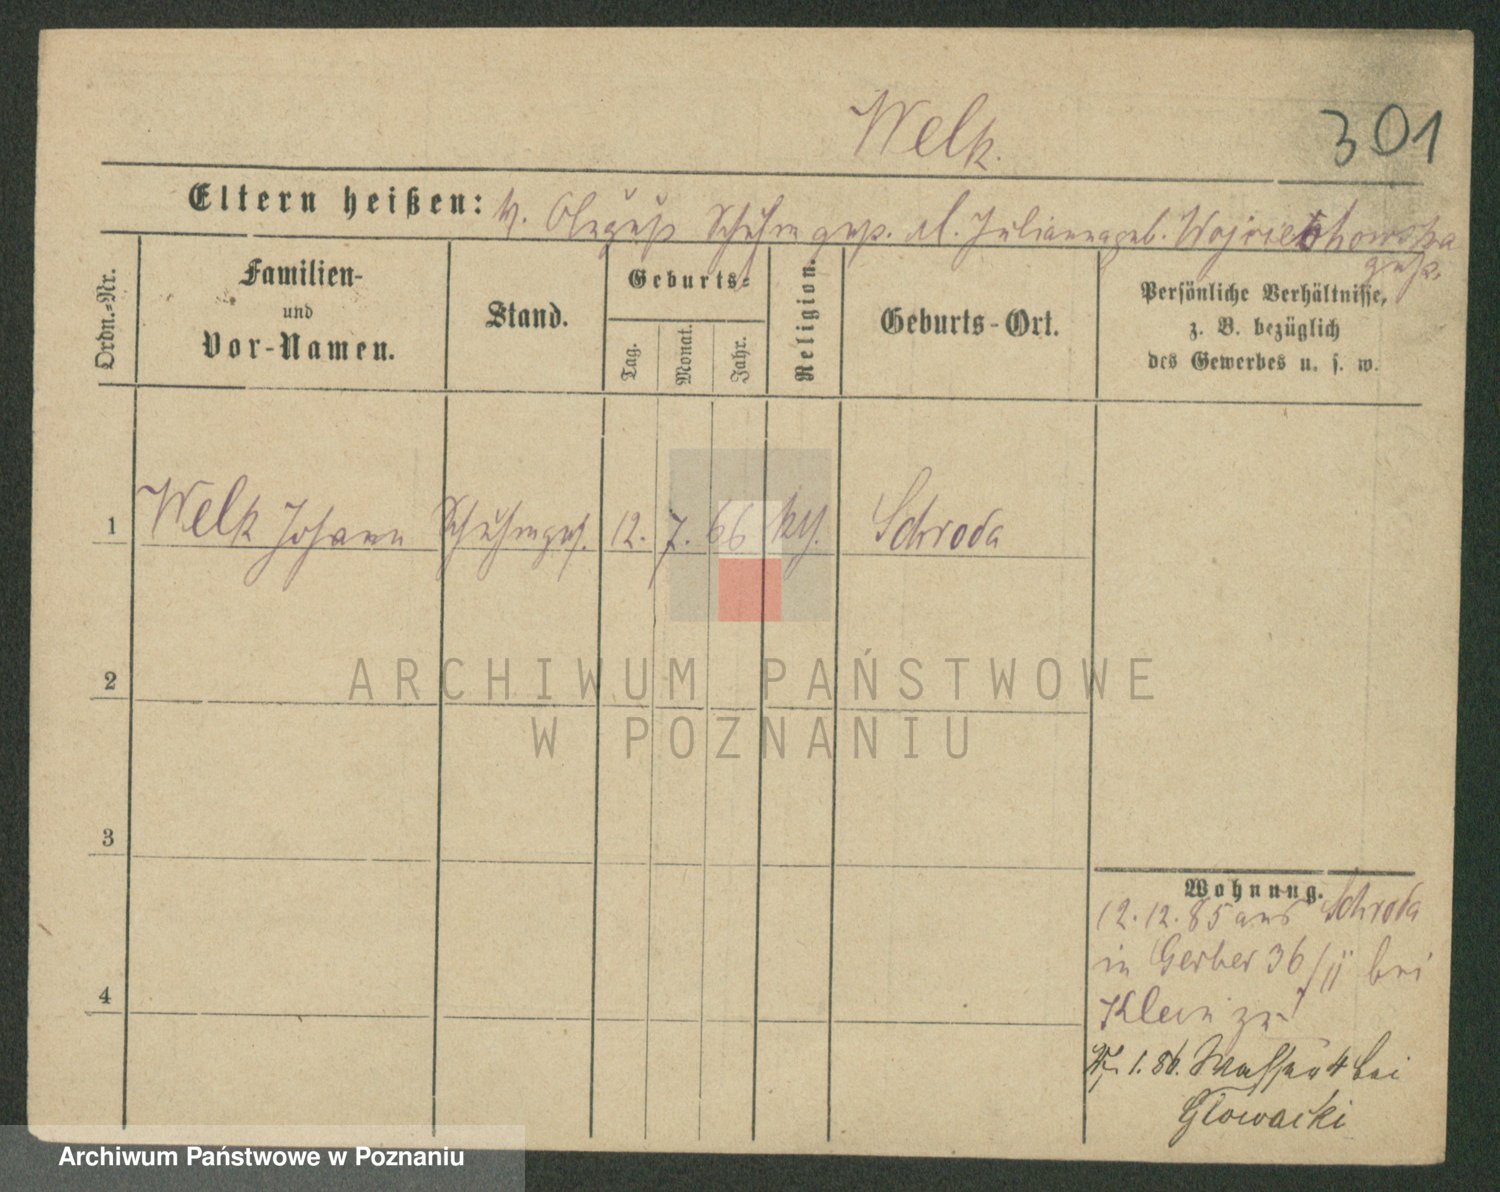 Welk.
301
Eltern heißen: V. August Schuhm gest. M. Julianna geb. Wojciechowska
gest.
Ordn.-Nr.
Familien-
und
Vor-Namen.
Stand.
Geburts-
Tag.
Monat.
Jahr.
Religion.
Geburts-Ort.
Persönliche Verhältnisse,
z. B. bezüglich
des Gewerbes u. s. w.
1 Welk Johann Schuhmges. 12. 7. 66 kth. Schroda
2
3
4
Wohnung.
12. 12. 85 aus Schroda
in Gerber 36/II bei
Klein zu
1. 86. Wasser 4 bei
Głowacki
ARCHIWUM PAŃSTWOWE
W POZNANIU
Archiwum Państwowe w Poznaniu